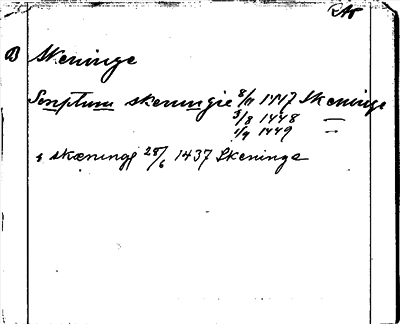 RAp
B Skeninge
Scriptum skeningie 8/11 1447 Skeninge
3/8 1448 —
1/9 1449 —
i skæninge 28/6 1437 Skeninge